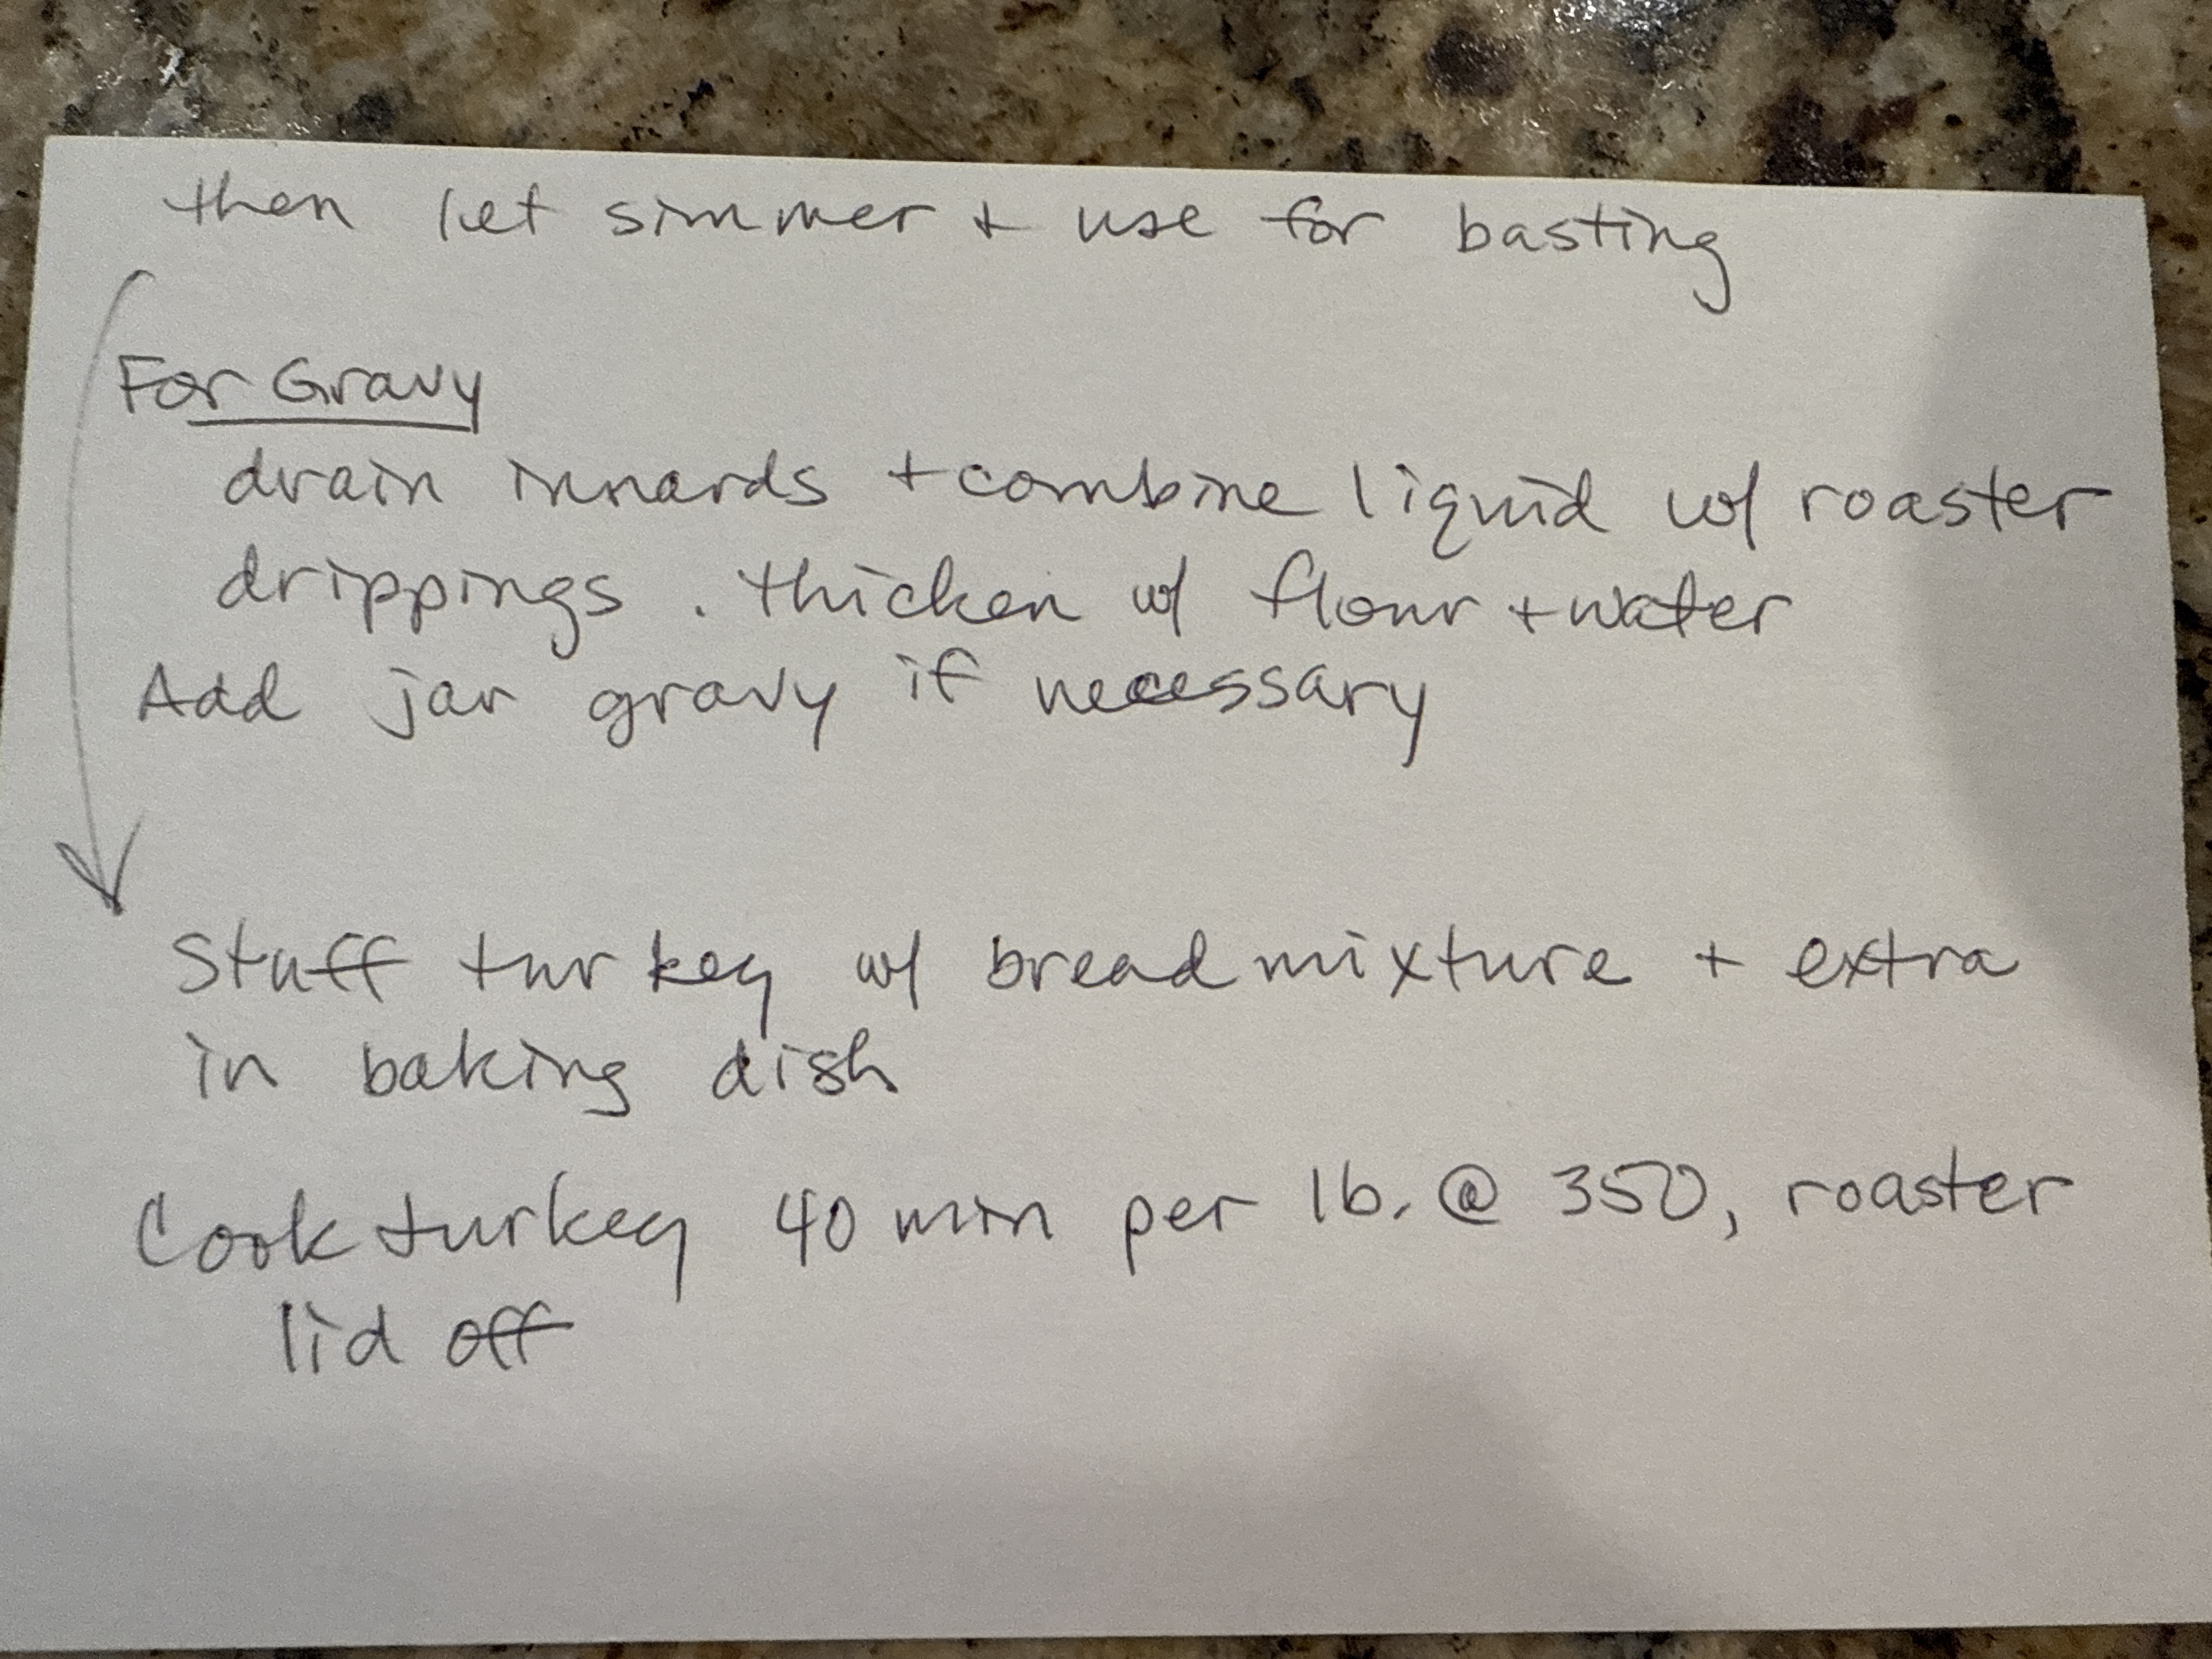 then let simmer + use for basting
For Gravy
drain innards + combine liquid w/ roaster
drippings . thicken w/ flour + water
Add jar gravy if necessary
Stuff turkey w/ bread mixture + extra
in baking dish
Cook turkey 40 min per lb. @ 350, roaster
lid off